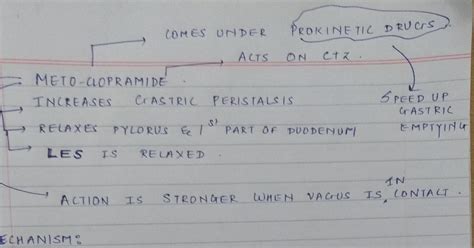 COMES UNDER PROKINETIC DRUGS
ACTS ON CTZ
METO-CLOPRAMIDE
INCREASES GASTRIC PERISTALSIS
RELAXES PYLORUS & 1st PART OF DUODENUM
LES IS RELAXED.
SPEED UP
GASTRIC
EMPTYING
ACTION IS STRONGER WHEN VAGUS IS IN CONTACT.
ECHANISM: